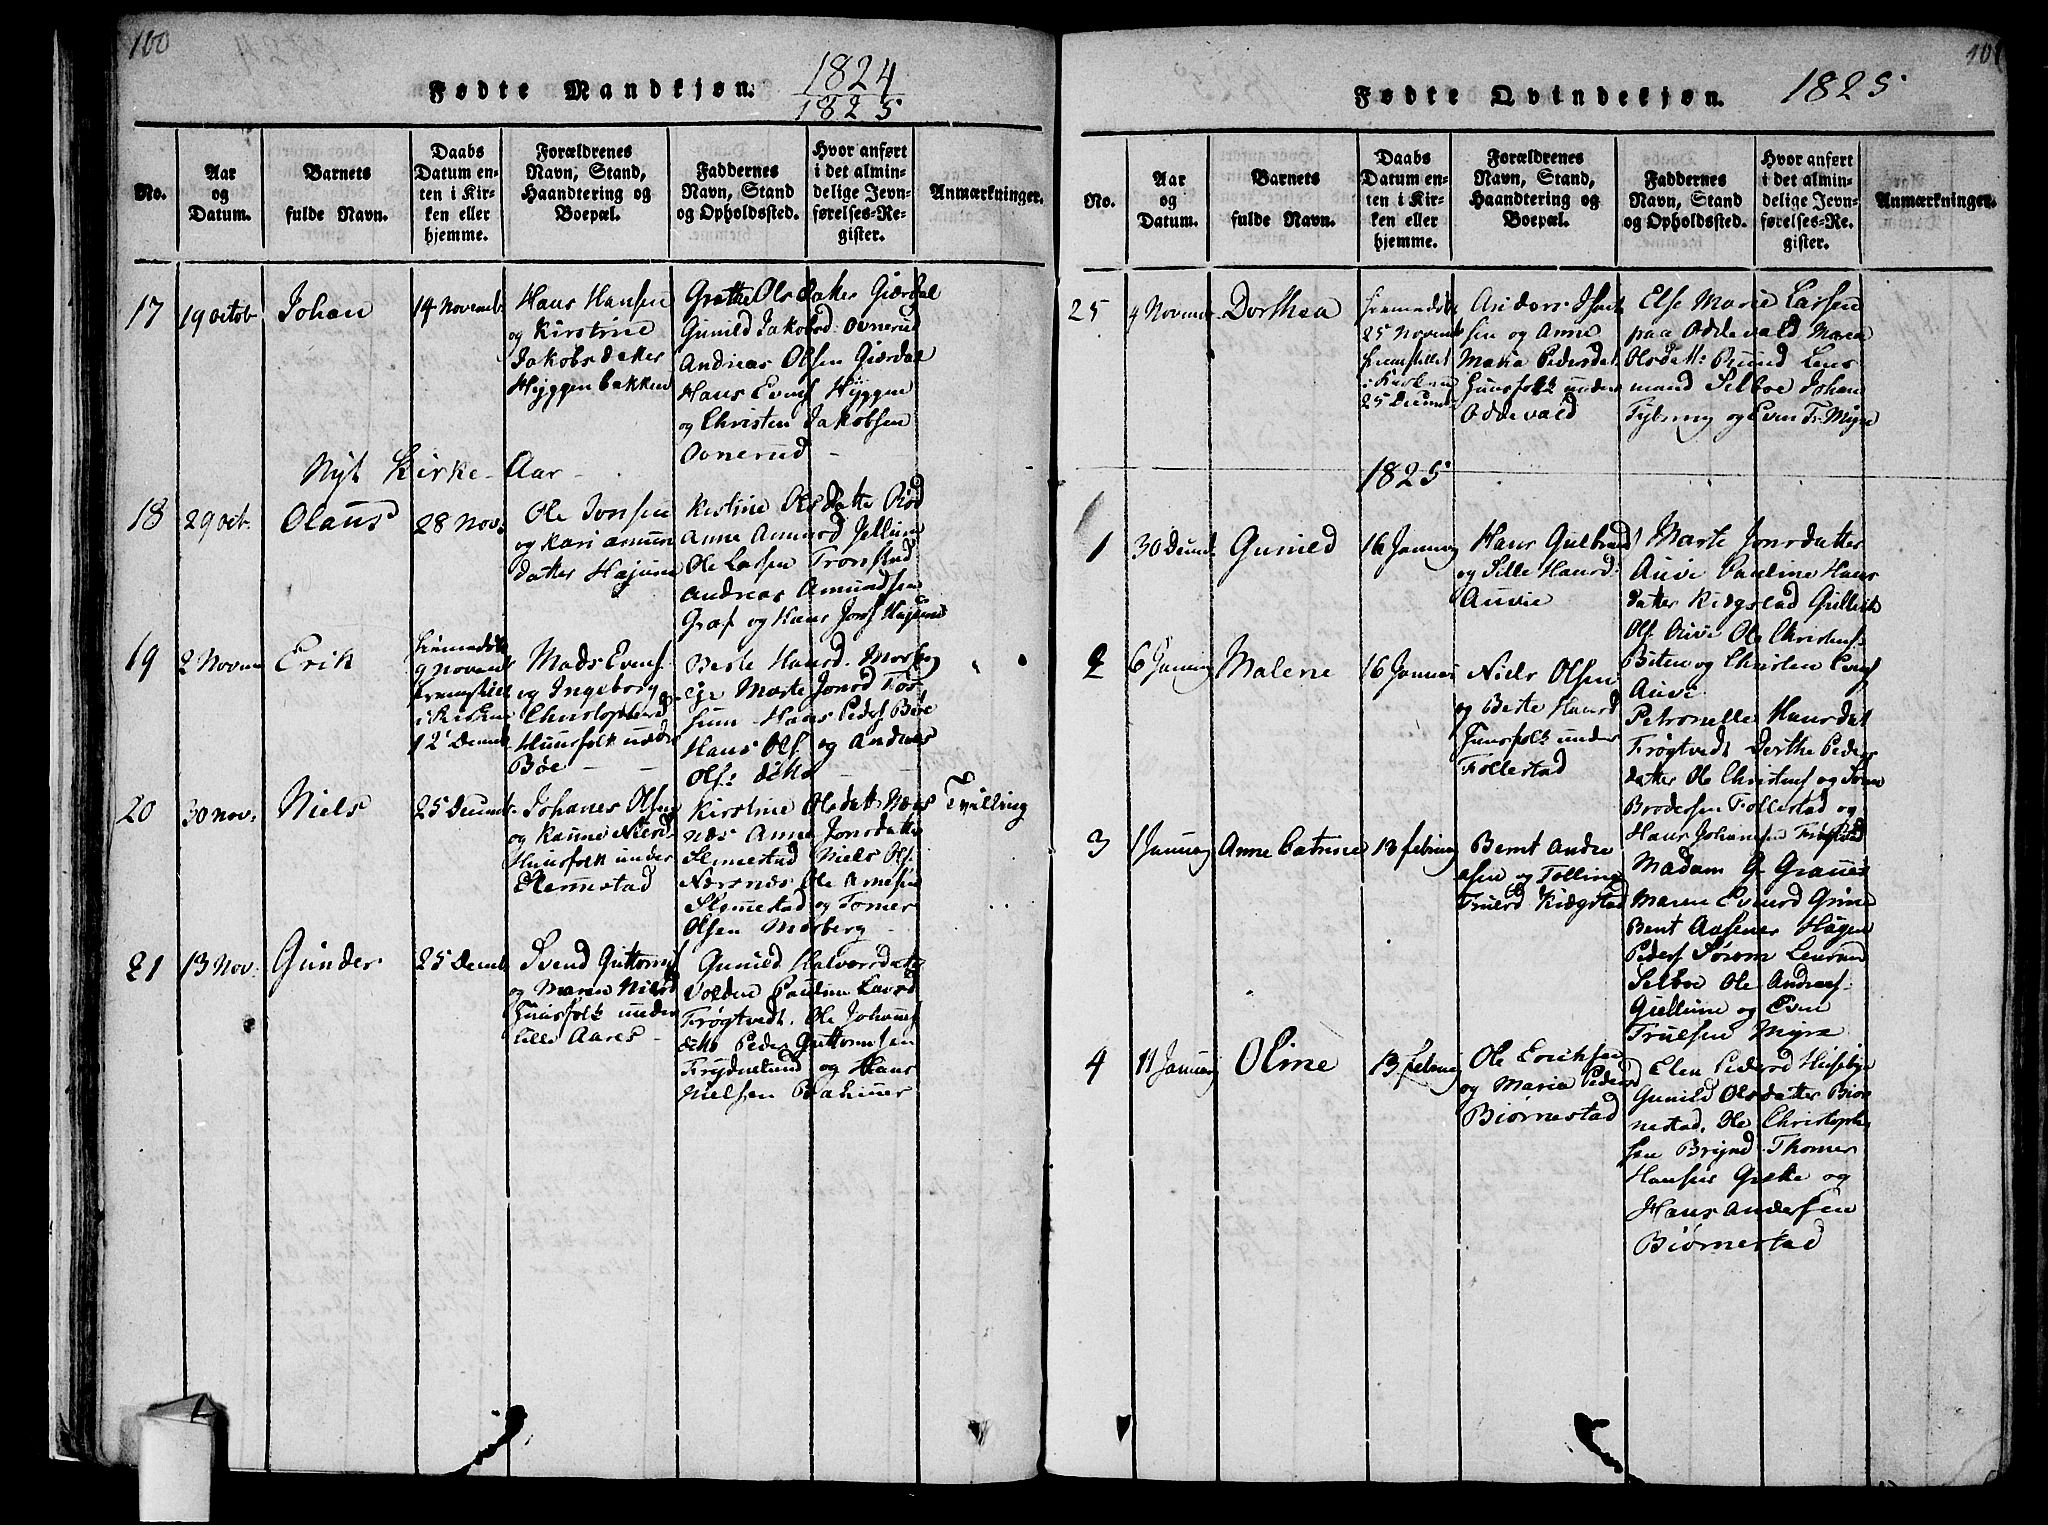 100
Fødte Mandkjøn. 1824
1825
No.
Aar
og
Datum.
Barnets
fulde Navn.
Daabs
Datum en-
ten i Kir-
ken eller
hjemme.
Forældrenes
Navn, Stand,
Haandtering og
Boepæl.
Faddernes
Navn, Stand
og Opholdssted.
Hvor anført
i det almin-
delige Jevn-
førelses-Re-
gister.
Anmærkninger.
17
19 octob
Johan
14 Novemb.
Hans Hansen
og Kirstine
Jakobsdatter
Hyggenbakken
Grethe Olsdatter Gjærdal
Gunild Jakobsd: Ovnerud
Andreas Olsen Gjærdal
Hans Evens Hyggen
og Christen Jakobsen
Ovnerud
Nyt Kirke-Aar
18
29 oct.
Olaus
28 Nov.
Ole Jonsen
og Kari Amun
datter
Kirstine Olsdatte Rød
Anne Amunsd Jellum
Ole Larsen Tronstad
Andreas Amundsen
Graf og Hans Jons
19
2 Novem
Erik
hiemmedøbt
9 Novemb
fremstillt
i Kirken
12 Decemb
Mads Evens.
og Ingeborg
Christophersd
Huusfolk under
Bøe
Berte Hansd. Morberg
eje Marte Jonsd Fos
sum Hans Peders Bøe
Hans Ols. og Andreas
Ols: dito
20
30 Nov.
Niels
25 Decemb.
Johanes Olsen
og Karine Nielsd.
Huusfolk under
Slemestad
Kirstine Olsdatt Næs
næs Anne Jonsdatte
Slemestad Niels Ols.
Nærsnæs Ole Arnesen
Slemestad og Tomes
Olsen Morberg
Tvilling
21
13 Nov.
Gunder
25 Decemb
Svend Guttorms
og Maren Nielsd
Huusfolk under
Lille Aares
Gunild Halvorsdatt
Volden Pauline Larsd
Frøgtvedt. Ole Johannes
dito Peder Guttormsen
Frydnelund og Hans
Nielsen
101
Fødte Qvindekjøn. 1825
No.
Aar
og
Datum.
Barnets
fulde Navn.
Daabs
Datum en-
ten i Kir-
ken eller
hjemme.
Forældrenes
Navn, Stand,
Haandtering og
Boepæl.
Faddernes
Navn, Stand
og Opholdssted.
Hvor anført
i det almin-
delige Jevn-
førelses-Re-
gister.
Anmærkninger.
25
9 Novemb
Dorthea
hiemmedøbt
25 Novemb
fremstillet
i Kirken
25 Decemb.
Anders
sen og Anne
Maria Pedersdat
Huusfolk under
Oddevald
Else Marie Larsen
paa Oddevald Maren
Olsdatt: Lens
mand Selboe Johan
og Even Tr. Myra
1825
1
30 Decemb.
Gunild
16 Januarj
Hans Gulbrands
og Sille Hansd.
Auvie
Marte Jonsdatter
Auvi Pauline Hans
datter Kiøgstad Gullick
Ols. Auvi Ole Christens.
og Christen Evens
Auvi
2
6 Januarj
Malene
16 Januari
Niels Olsen
og Berte Hansd
Huusfolk under
Follestad
Petronelle Hansdat
Frøgtvedt Berthe Peders
datter Ole Christens og
Brodersen Follestad og
Hans Johansen Frøgtvedt
3
1 Januarj
Anne Catrine
13 Februarj
Bernt Andre
asen og
Truelsd Kiøgstad
Madam G Graues
Maren Evensd
Bent Aasenes Hagen
Peders Lensmand
Selboe Ole Andreas.
Gjellum og Even
Truelsen Myra
4
11 Januarj
Oline
13 Februarj
Ole Ericksen
og Maria Pedersd
Biørnestad
Elen Pedersd Huseby
Gunild Olsdatter Biør
nestad. Ole Christopher
sen Thomes
Hansen og
Hans Andersen
Biørnestad